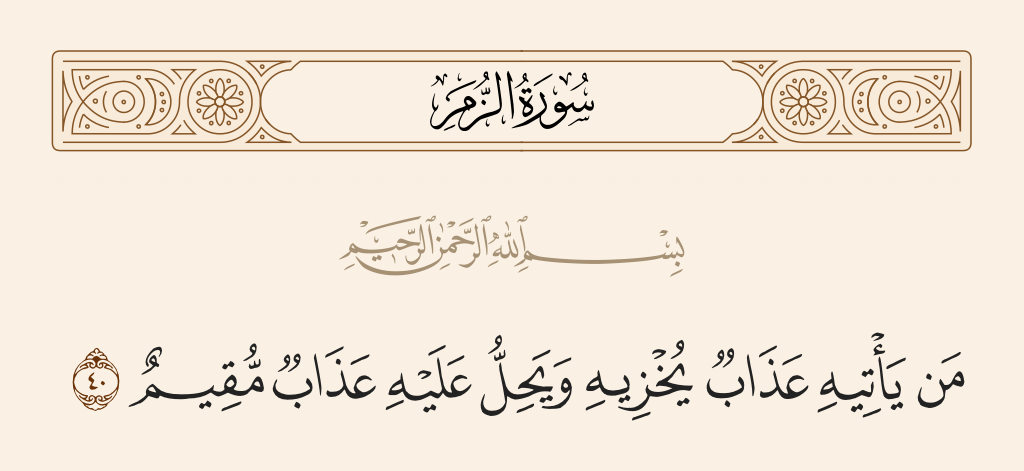 سُورَةُ الزُّمَرِ
بِسْمِ ٱللَّهِ ٱلرَّحْمَٰنِ ٱلرَّحِيمِ
مَن يَأْتِيهِ عَذَابٌ يُخْزِيهِ وَيَحِلُّ عَلَيْهِ عَذَابٌ مُّقِيمٌ ٤٠